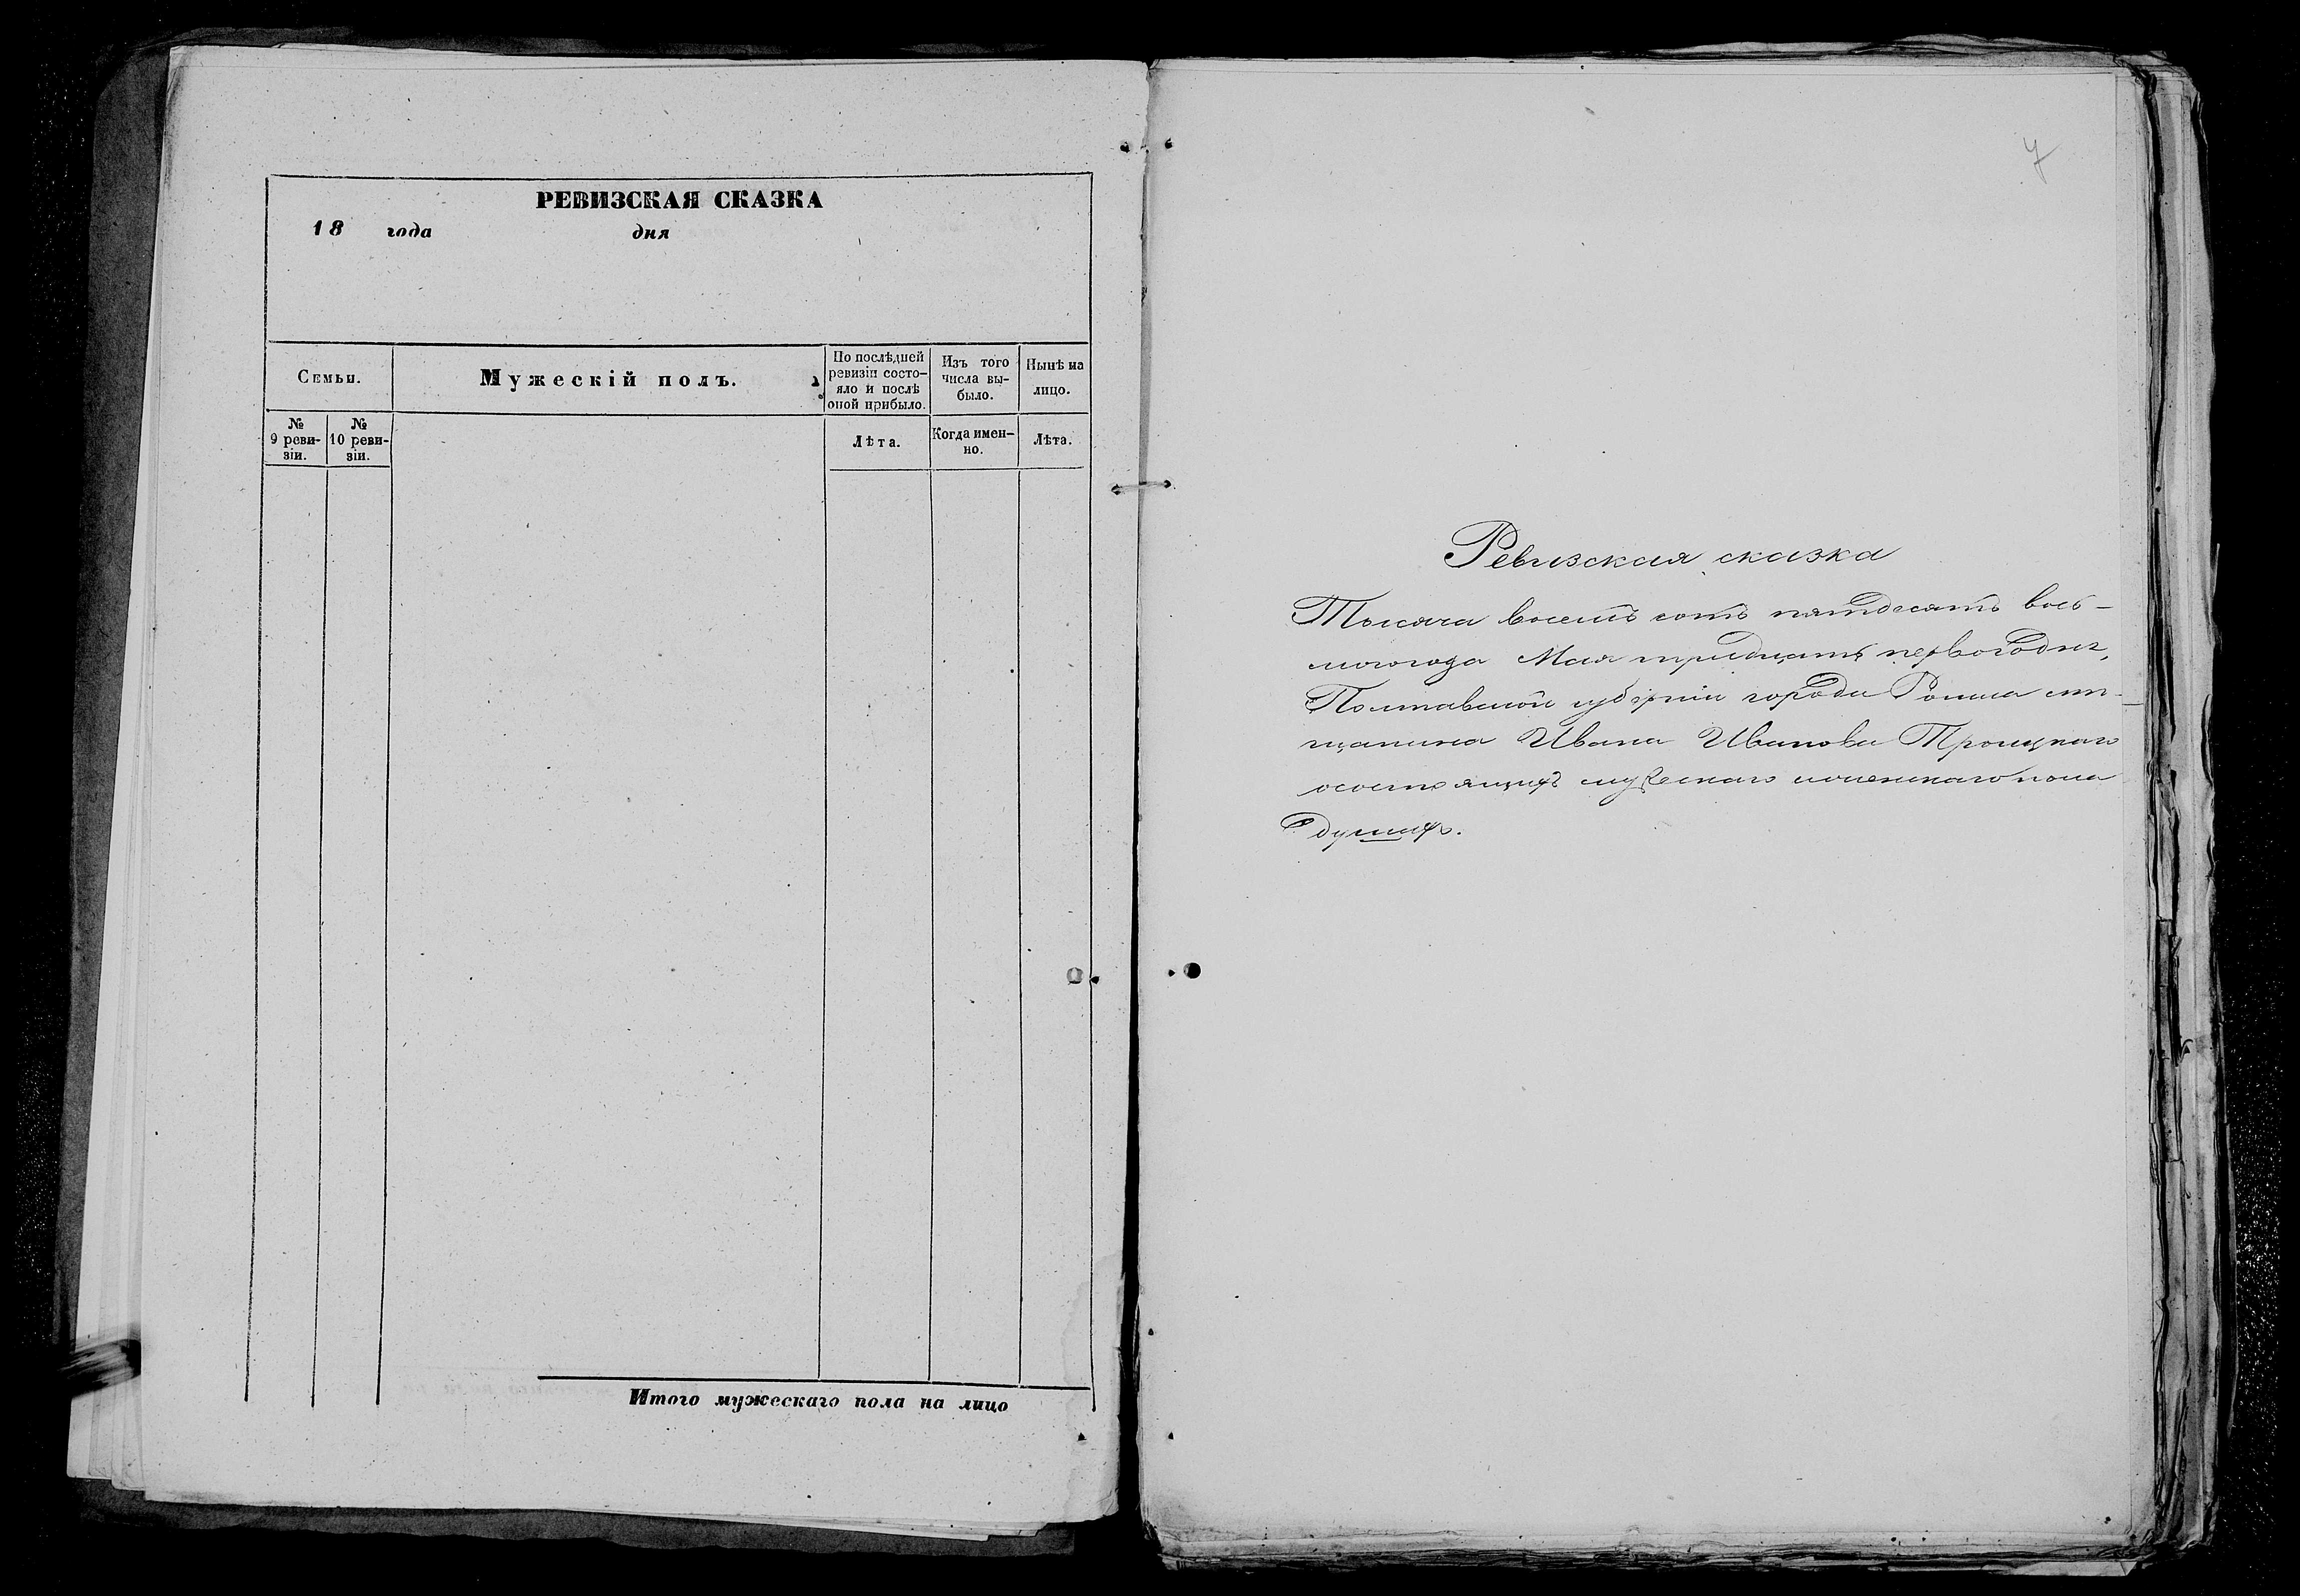 РЕВИЗСКАЯ СКАЗКА
18 года дня
Семьи.
Мужескій полъ.
По послѣдней
ревизіи состо-
яло и послѣ
оной прибыло.
Изъ того
числа вы-
было.
Нынѣ на
лицо.
№
9 реви-
зіи.
№
10 реви-
зіи.
Лѣта.
Когда имен-
но.
Лѣта.
Итого мужескаго пола на лицо
7
Ревизская сказка
Тысяча восемъ сотъ пятдесятъ вось-
могогода Мая тридцать первогодня,
Полтавской губерніи города Ромна мѣ-
щанина Ивана Иванова Троицкаго
осостоящихъ мужескаго иженскаго пола
душахъ.